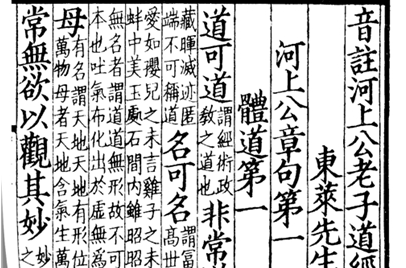 音註河上公老子道經
東萊先生
河上公章句第一
體道第一
道可道謂經術政教之道也非常
藏暉滅迹匿端不可稱道名可名謂富高世
愛如嬰兒之未言雞子之未
蚌中美玉處石間内雖昭昭
無名者謂道道無形故不可
本也吐氣布化出於虛無爲
母有名謂天地天地有形位萬物母者天地含氣生萬
常無欲以觀其妙妙之